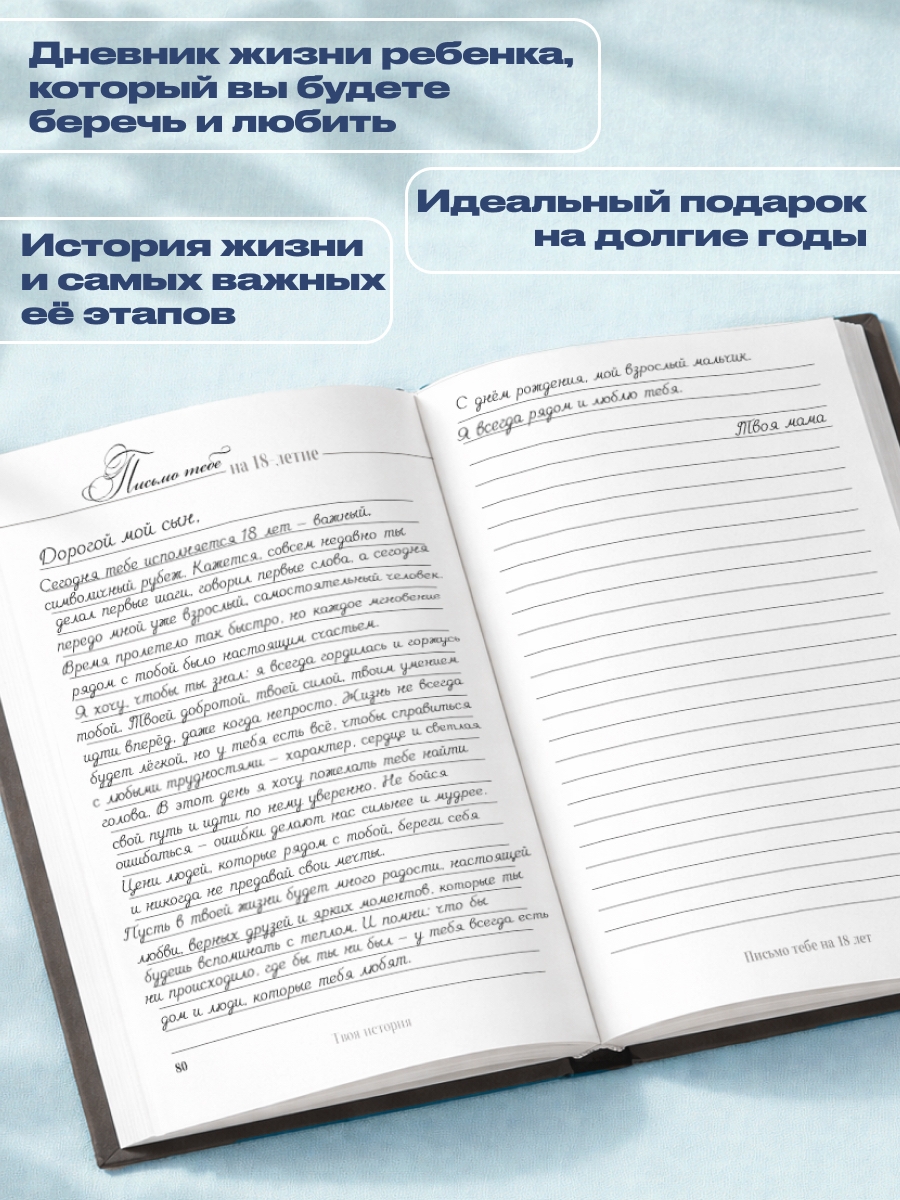 Дневник жизни ребенка,
который вы будете
беречь и любить
Идеальный подарок
на долгие годы
История жизни
и самых важных
её этапов
Письмо тебе на 18-летие
Дорогой мой сын,
Сегодня тебе исполняется 18 лет – важный,
символичный рубеж. Кажется, совсем недавно ты
делал первые шаги, говорил первые слова, а сегодня
передо мной уже взрослый, самостоятельный человек.
Время пролетело так быстро, но каждое мгновение
рядом с тобой было настоящим счастьем.
Я хочу, чтобы ты знал: я всегда гордилась и горжусь
тобой. Твоей добротой, твоей силой, твоим умением
идти вперёд, даже когда непросто. Жизнь не всегда
будет лёгкой, но у тебя есть всё, чтобы справиться
с любыми трудностями – характер, сердце и светлая
голова. В этот день я хочу пожелать тебе найти
свой путь и идти по нему уверенно. Не бойся
ошибаться – ошибки делают нас сильнее и мудрее.
Цени людей, которые рядом с тобой, береги себя
и никогда не предавай свои мечты.
Пусть в твоей жизни будет много радости, настоящей
любви, верных друзей и ярких моментов, которые ты
будешь вспоминать с теплом. И помни: что бы
ни происходило, где бы ты ни был – у тебя всегда есть
дом и люди, которые тебя любят.
Твоя история
80
С днём рождения, мой взрослый мальчик.
Я всегда рядом и люблю тебя.
Твоя мама
Письмо тебе на 18 лет